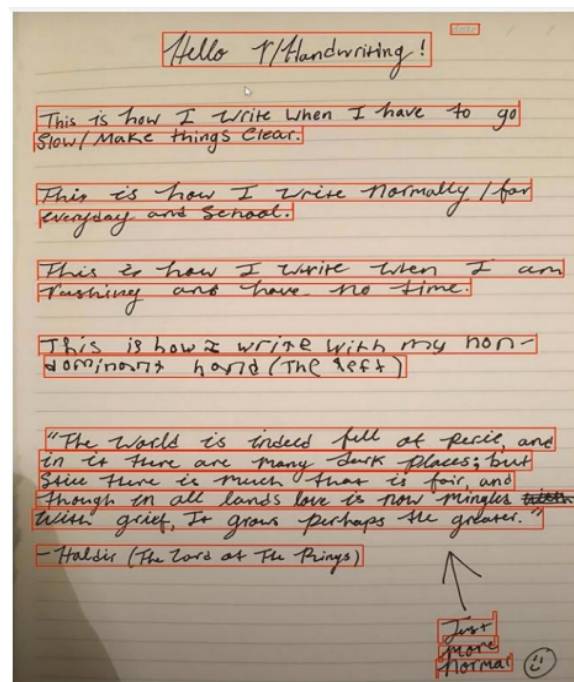 Hello r/Handwriting!
This is how I write when I have to go
Slow/Make things Clear.
This is how I write Normally/for
everyday and School.
This is how I write when I am
rushing and have no time.
This is how I write with my non-
dominant hand (The left)
"The World is indeed full of peril, and
in it there are many dark places; but
Still there is much that is fair, and
though in all lands love is now mingled with
With grief, It grows perhaps the greater."
- Haldir (The Lord of The Rings)
Just
more
normal